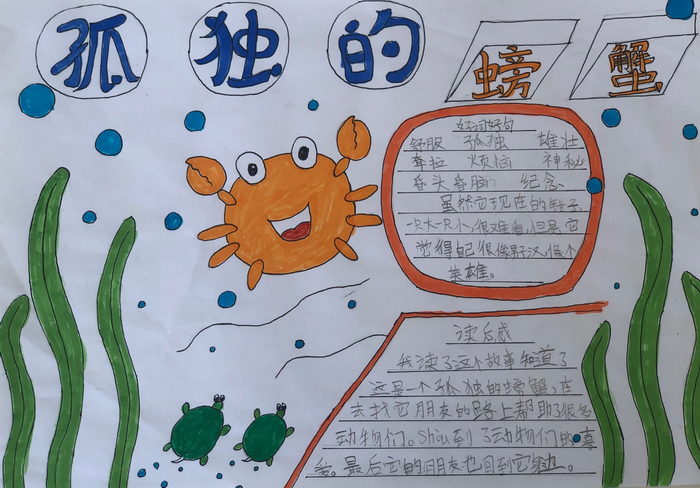 孤独的螃蟹
好词好句
舒服 孤独 雄壮
耷拉 烦恼 神秘
昏头昏脑 纪念
虽然它现在的钳子
一只大一只小，很难看，但是，它
觉得自己很像男子汉，像个
英雄。
读后感
我读了这个故事知道了
这是一个孤独的螃蟹，在
去找它朋友的路上帮助了很多
动物们。Shòu到了动物们的喜
爱。最后它的朋友也回到它身边。